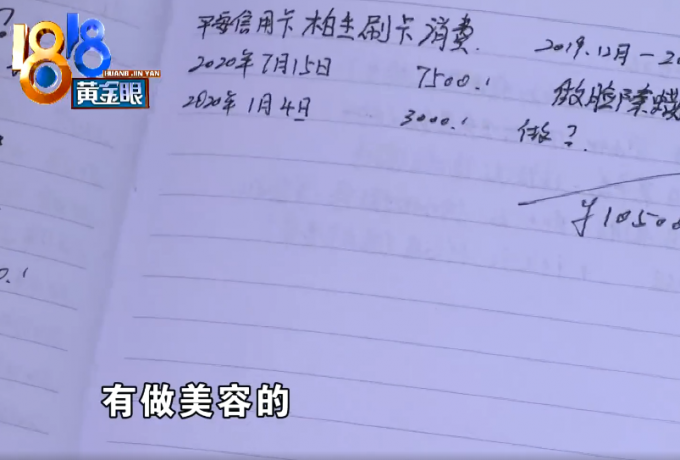 1818
HUANG JIN YAN
黄金眼
信用卡 柏生刷卡消费.
2019.12月一20
2020年7月15日 7500.!
做脸除
2020年1月4日 3000.!
做?
¥10500
0.!
有做美容的